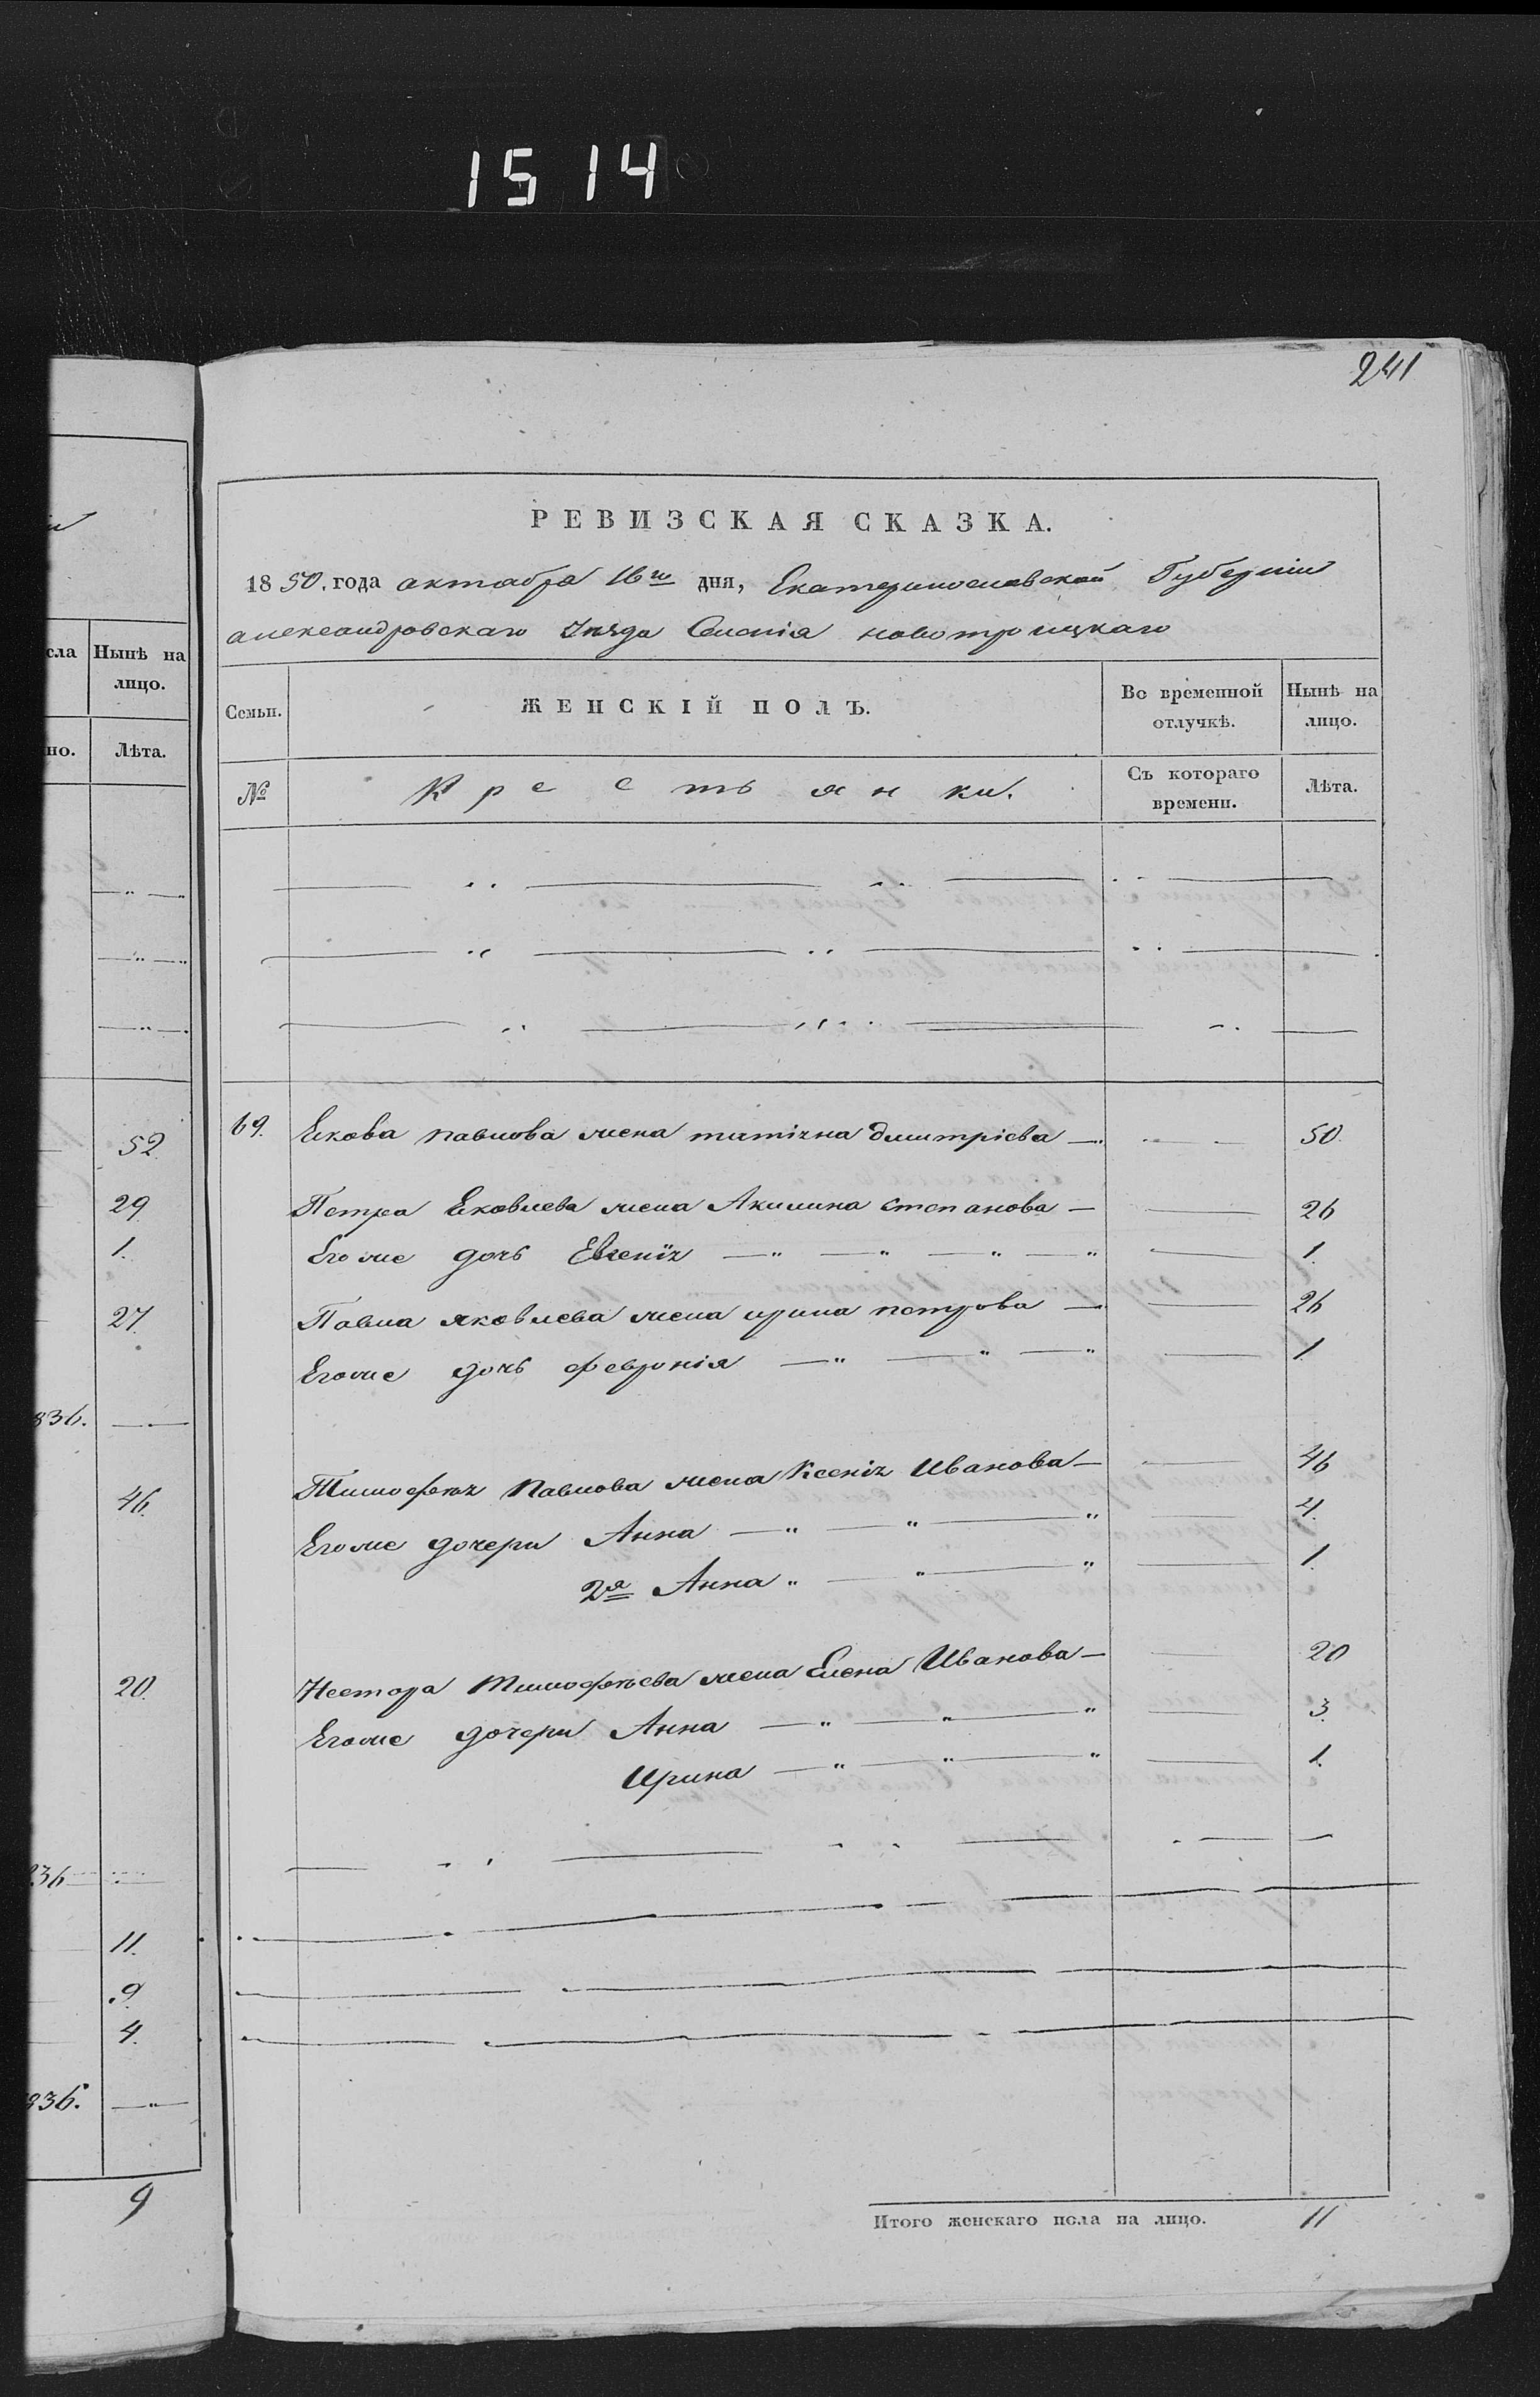 1514
241
РЕВИЗСКАЯ СКАЗКА.
1850. года октабра 16го дня, Екатеринославской Губерніи
александровскаго Уѣзда Селенія новотроицкаго
сла
Нынѣ на лицо.
но.
Лѣта.
Семьи.
ЖЕНСКІЙ ПОЛЪ.
Во временной отлучкѣ.
Нынѣ на лицо.
№
Крестьянки.
Съ котораго времени.
Лѣта.
69. Якова павлова жена татіяна дмитріева 50
Петра Яковлева жена Акилина степанова 26
Его же дочь Евгенія 1.
Павла яковлева жена ирина петрова 26
Его же дочь февронія 1.
Тимофея павлова жена Ксенія Иванова 46
Его же дочери Анна 4.
2я Анна 1.
Нестора тимофѣева жена Елена Иванова 20
Его же дочери Анна 3.
Ирина 1.
Итого женскаго пола на лицо. 11
52.
29.
1.
27.
836.
46.
20.
836
11.
9.
4.
836.
9